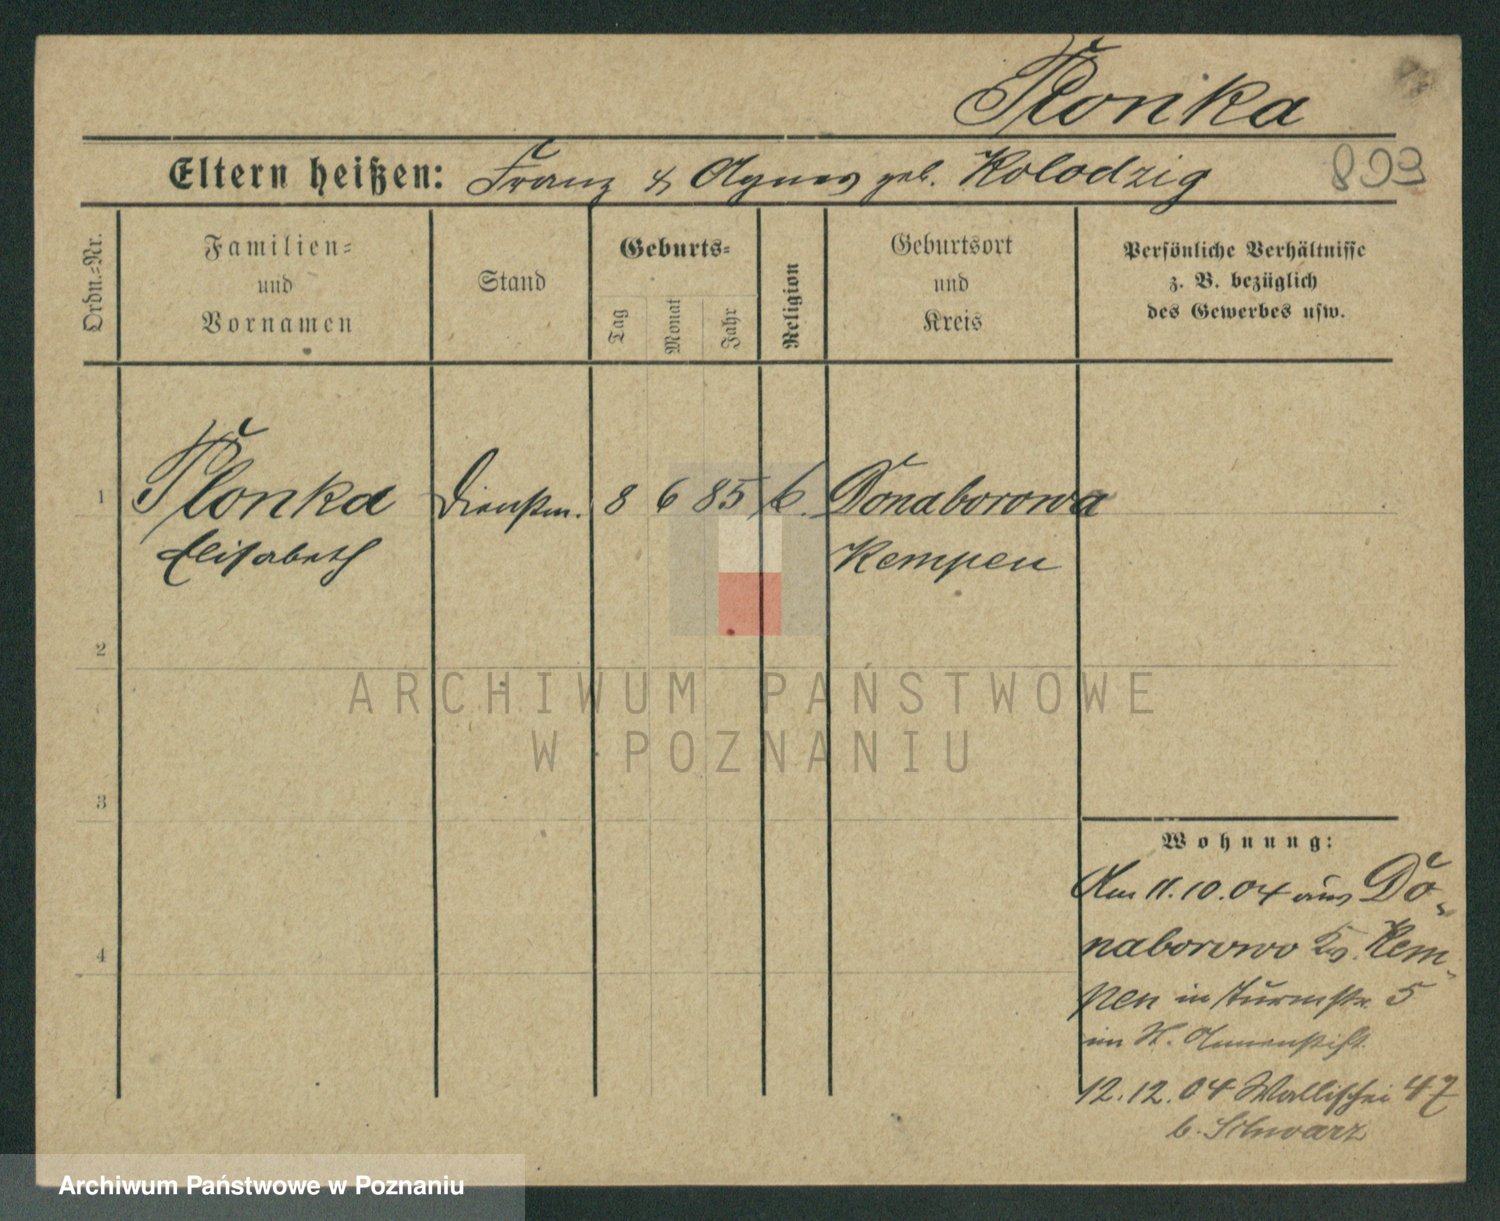 Plonka
Eltern heißen: Franz & Agnes geb. Kolodzig 893
Ordn.-Nr.
Familien-
und
Vornamen
Stand
Geburts-
Tag
Monat
Jahr
Religion
Geburtsort
und
Kreis
Persönliche Verhältnisse
z. B. bezüglich
des Gewerbes usw.
1 Plonka Dienstm. 8 6 85 k. Donaborowa
Elisabeth Kempen
2
3
4
Wohnung:
Am 11.10.04 aus Do-
naborowo Kr. Kem-
pen in Turmstr. 5
im St. Annenstift
12.12.04 Wallischei 47
b. Schwarz
ARCHIWUM PAŃSTWOWE
W POZNANIU
Archiwum Państwowe w Poznaniu